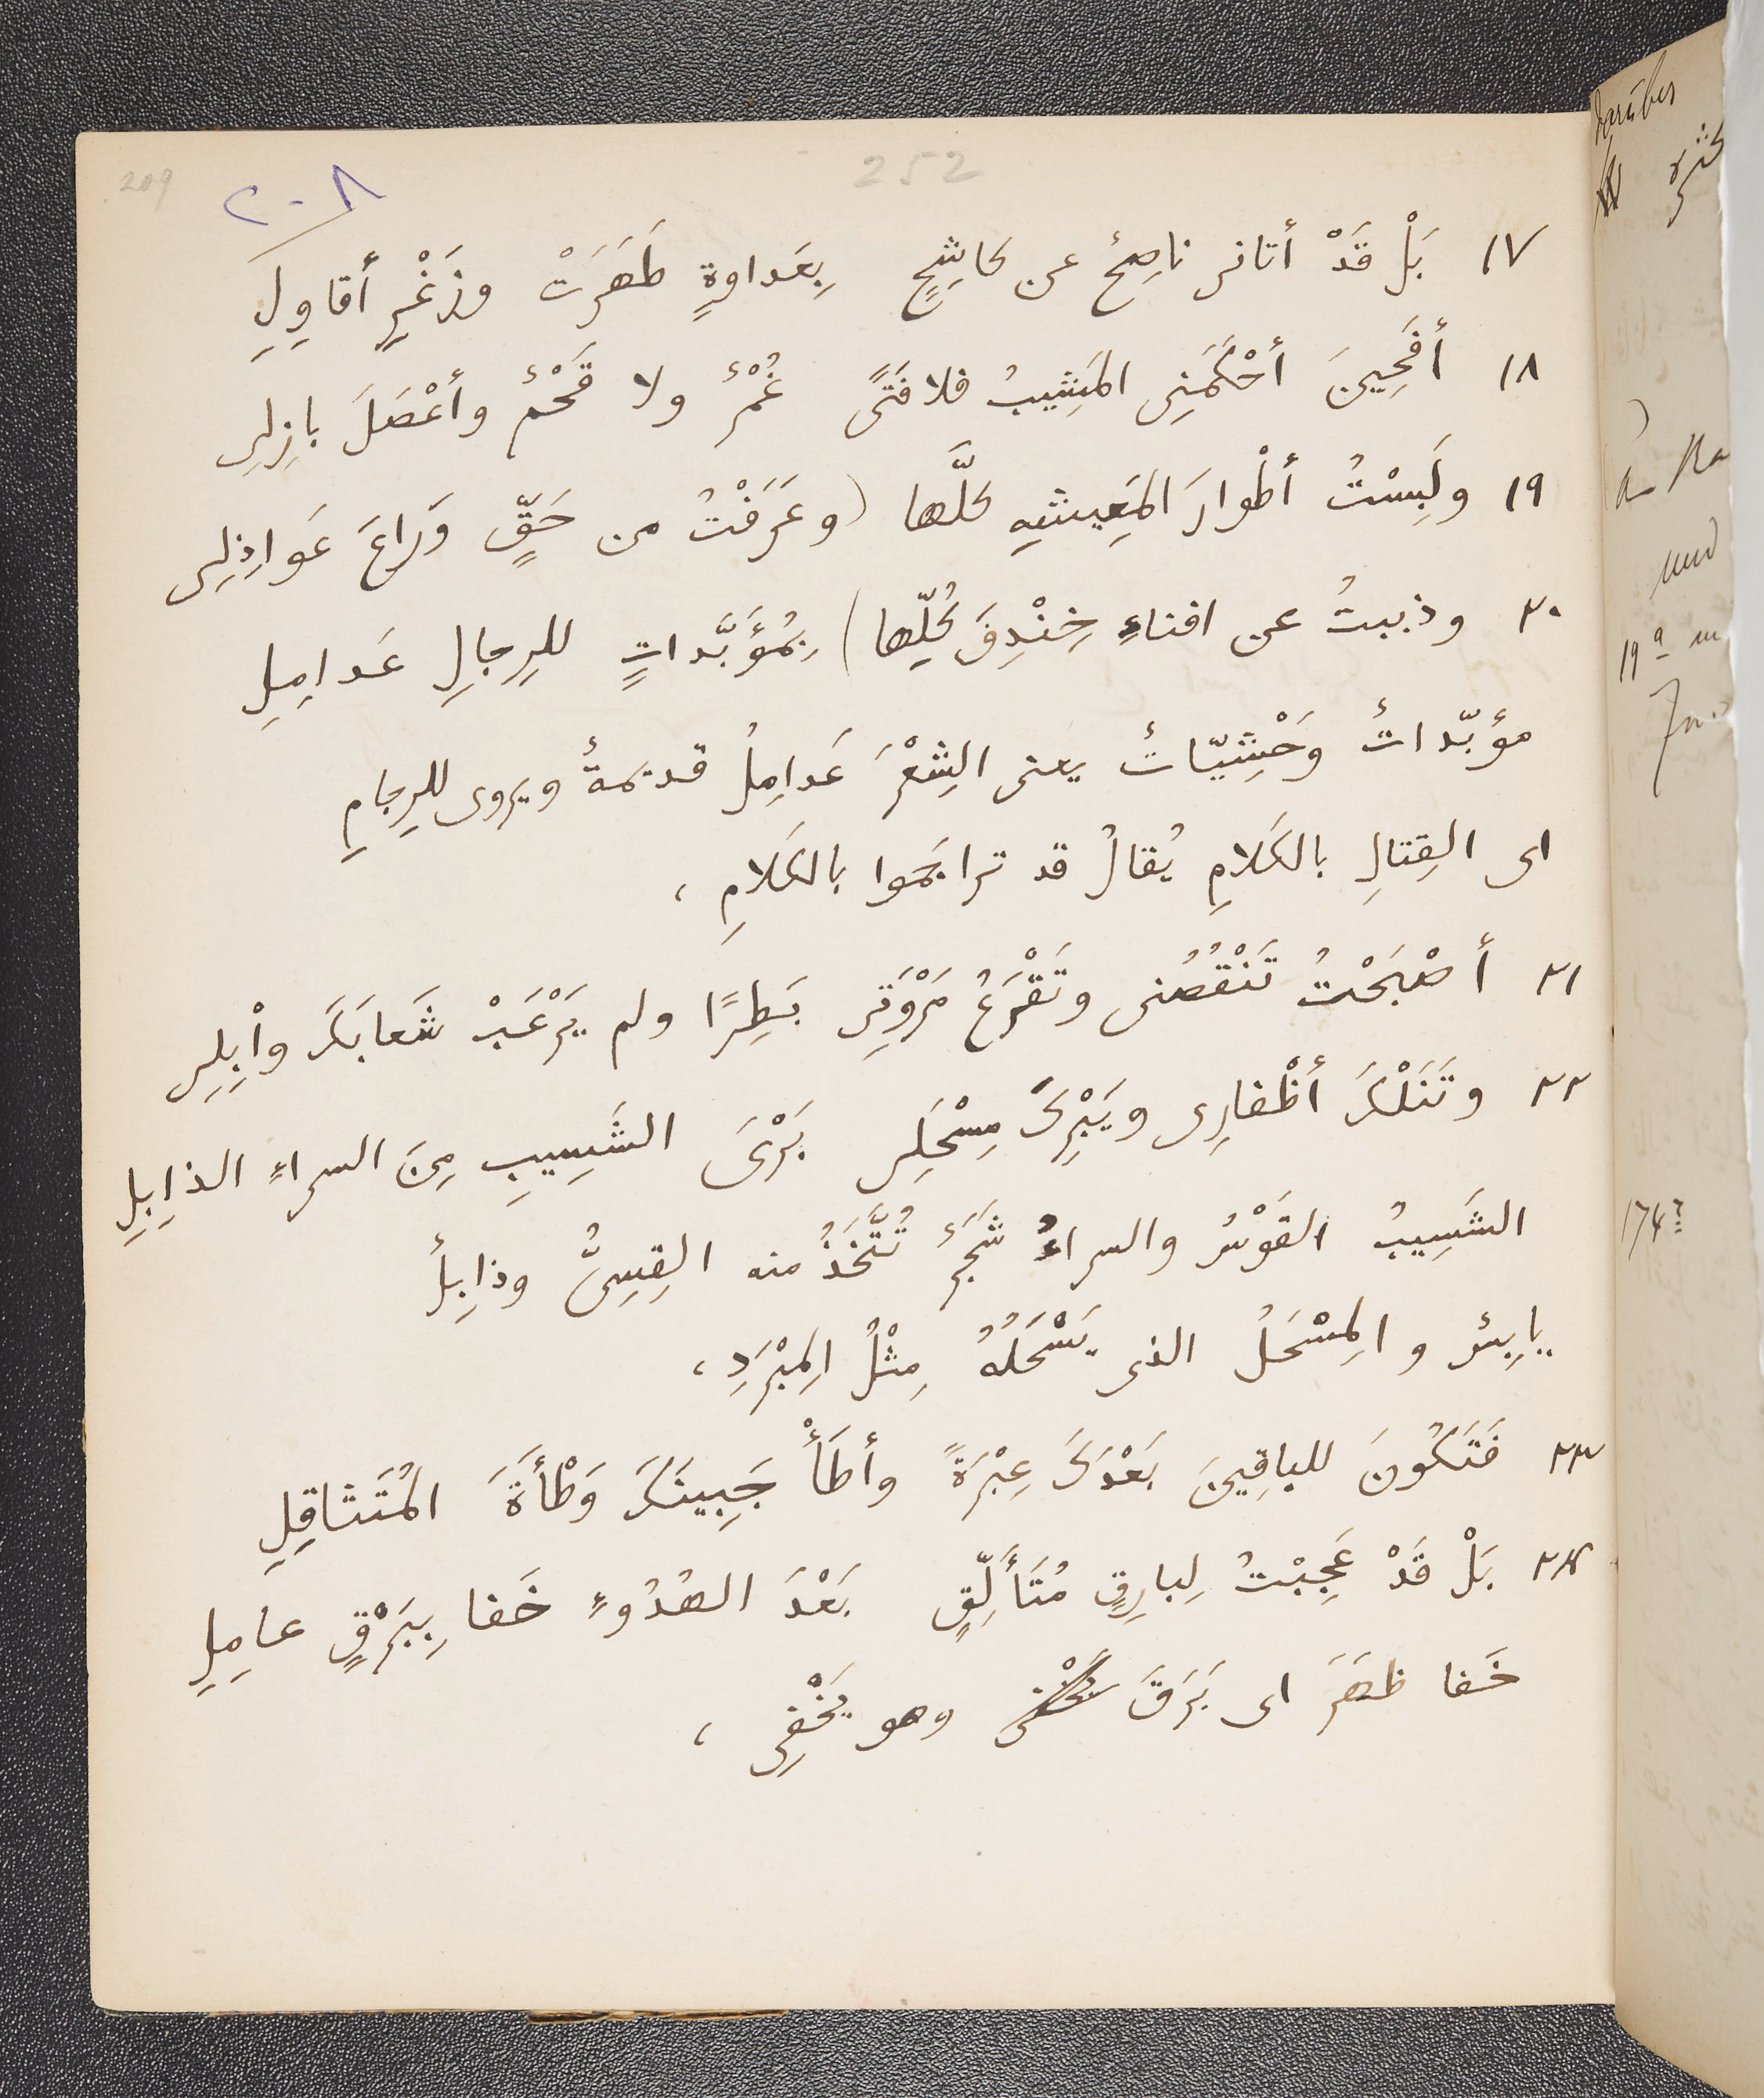 209
٢٠٨
252
١٧ بَلْ قَدْ أتانى ناصِحٌ عن كاشِحٍ بِعَداوةٍ ظَهَرَتْ وزَغْرِ أقاوِلِ
١٨ أفَحِينَ أحْكَمَنِى المَشِيبُ فلا فَتًى غُمْرٌ ولا قَحْمٌ وأعْصَلَ بازِلِى
١٩ ولَبِسْتُ أطْوارَ المَعِيشةِ كلَّها (وعَرَفْتُ من حَقٍّ وَراعَ عَواذِلِى
٢٠ وذببتُ عن افناءِ خِنْدِفَ كُلِّها) بِمُؤَبَّداتٍ للرِجالِ عَدامِلِ
مؤبّداتٌ وَحْشِيّاتٌ يعنى الشِعْرَ عَدامِلُ قديمةٌ ويروى للرِجامِ
اى القِتالِ بالكَلامِ يُقالُ قد تراجَموا بالكَلامِ ،
٢١ أصْبَحْتُ تَنْقُصُنى وتَقْرَعُ مَرْوَتِى بَطِرًا ولم يَرْعَبْ شَعابَكَ وابِلِى
٢٢ وتَنَلْكَ أظْفارِى ويَبْرِكَ مِسْحَلِى بَرْىَ الشَسِيبِ مِنَ السراءِ الذابِلِ
الشَسِيبُ القَوْسُ والسراءُ شَجَرٌ تُتَّخَذُ منه القِسِىُّ وذابِلٌ
يابِسٌ والمِسْحَلُ الذى يَسْحَلُهُ مِثْلُ المِبْرَدِ ،
٢٣ فَتَكُونَ للباقِينَ بَعْدَكَ عِبْرَةً وأطَأْ جَبِينَكَ وَطْأَةَ المُتَثاقِلِ
٢٤ بَلْ قَدْ عَجِبْتُ لِبارِقٍ مُتَأَلِّقٍ بَعْدَ الهُدُوءِ خَفا بِبَرْقٍ عامِلِ
خَفا ظهَرَ اى بَرَقَ وهو يَخْفِى ،
darüber
und
19ª
174